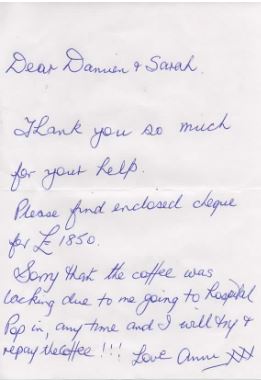 Dear Damien & Sarah.
Thank you so much
for your help.
Please find enclosed cheque
for £ 1850.
Sorry that the coffee was
lacking due to me going to hospital
Pop in, any time and I will try &
repay the coffee !!! Love Anne xxx